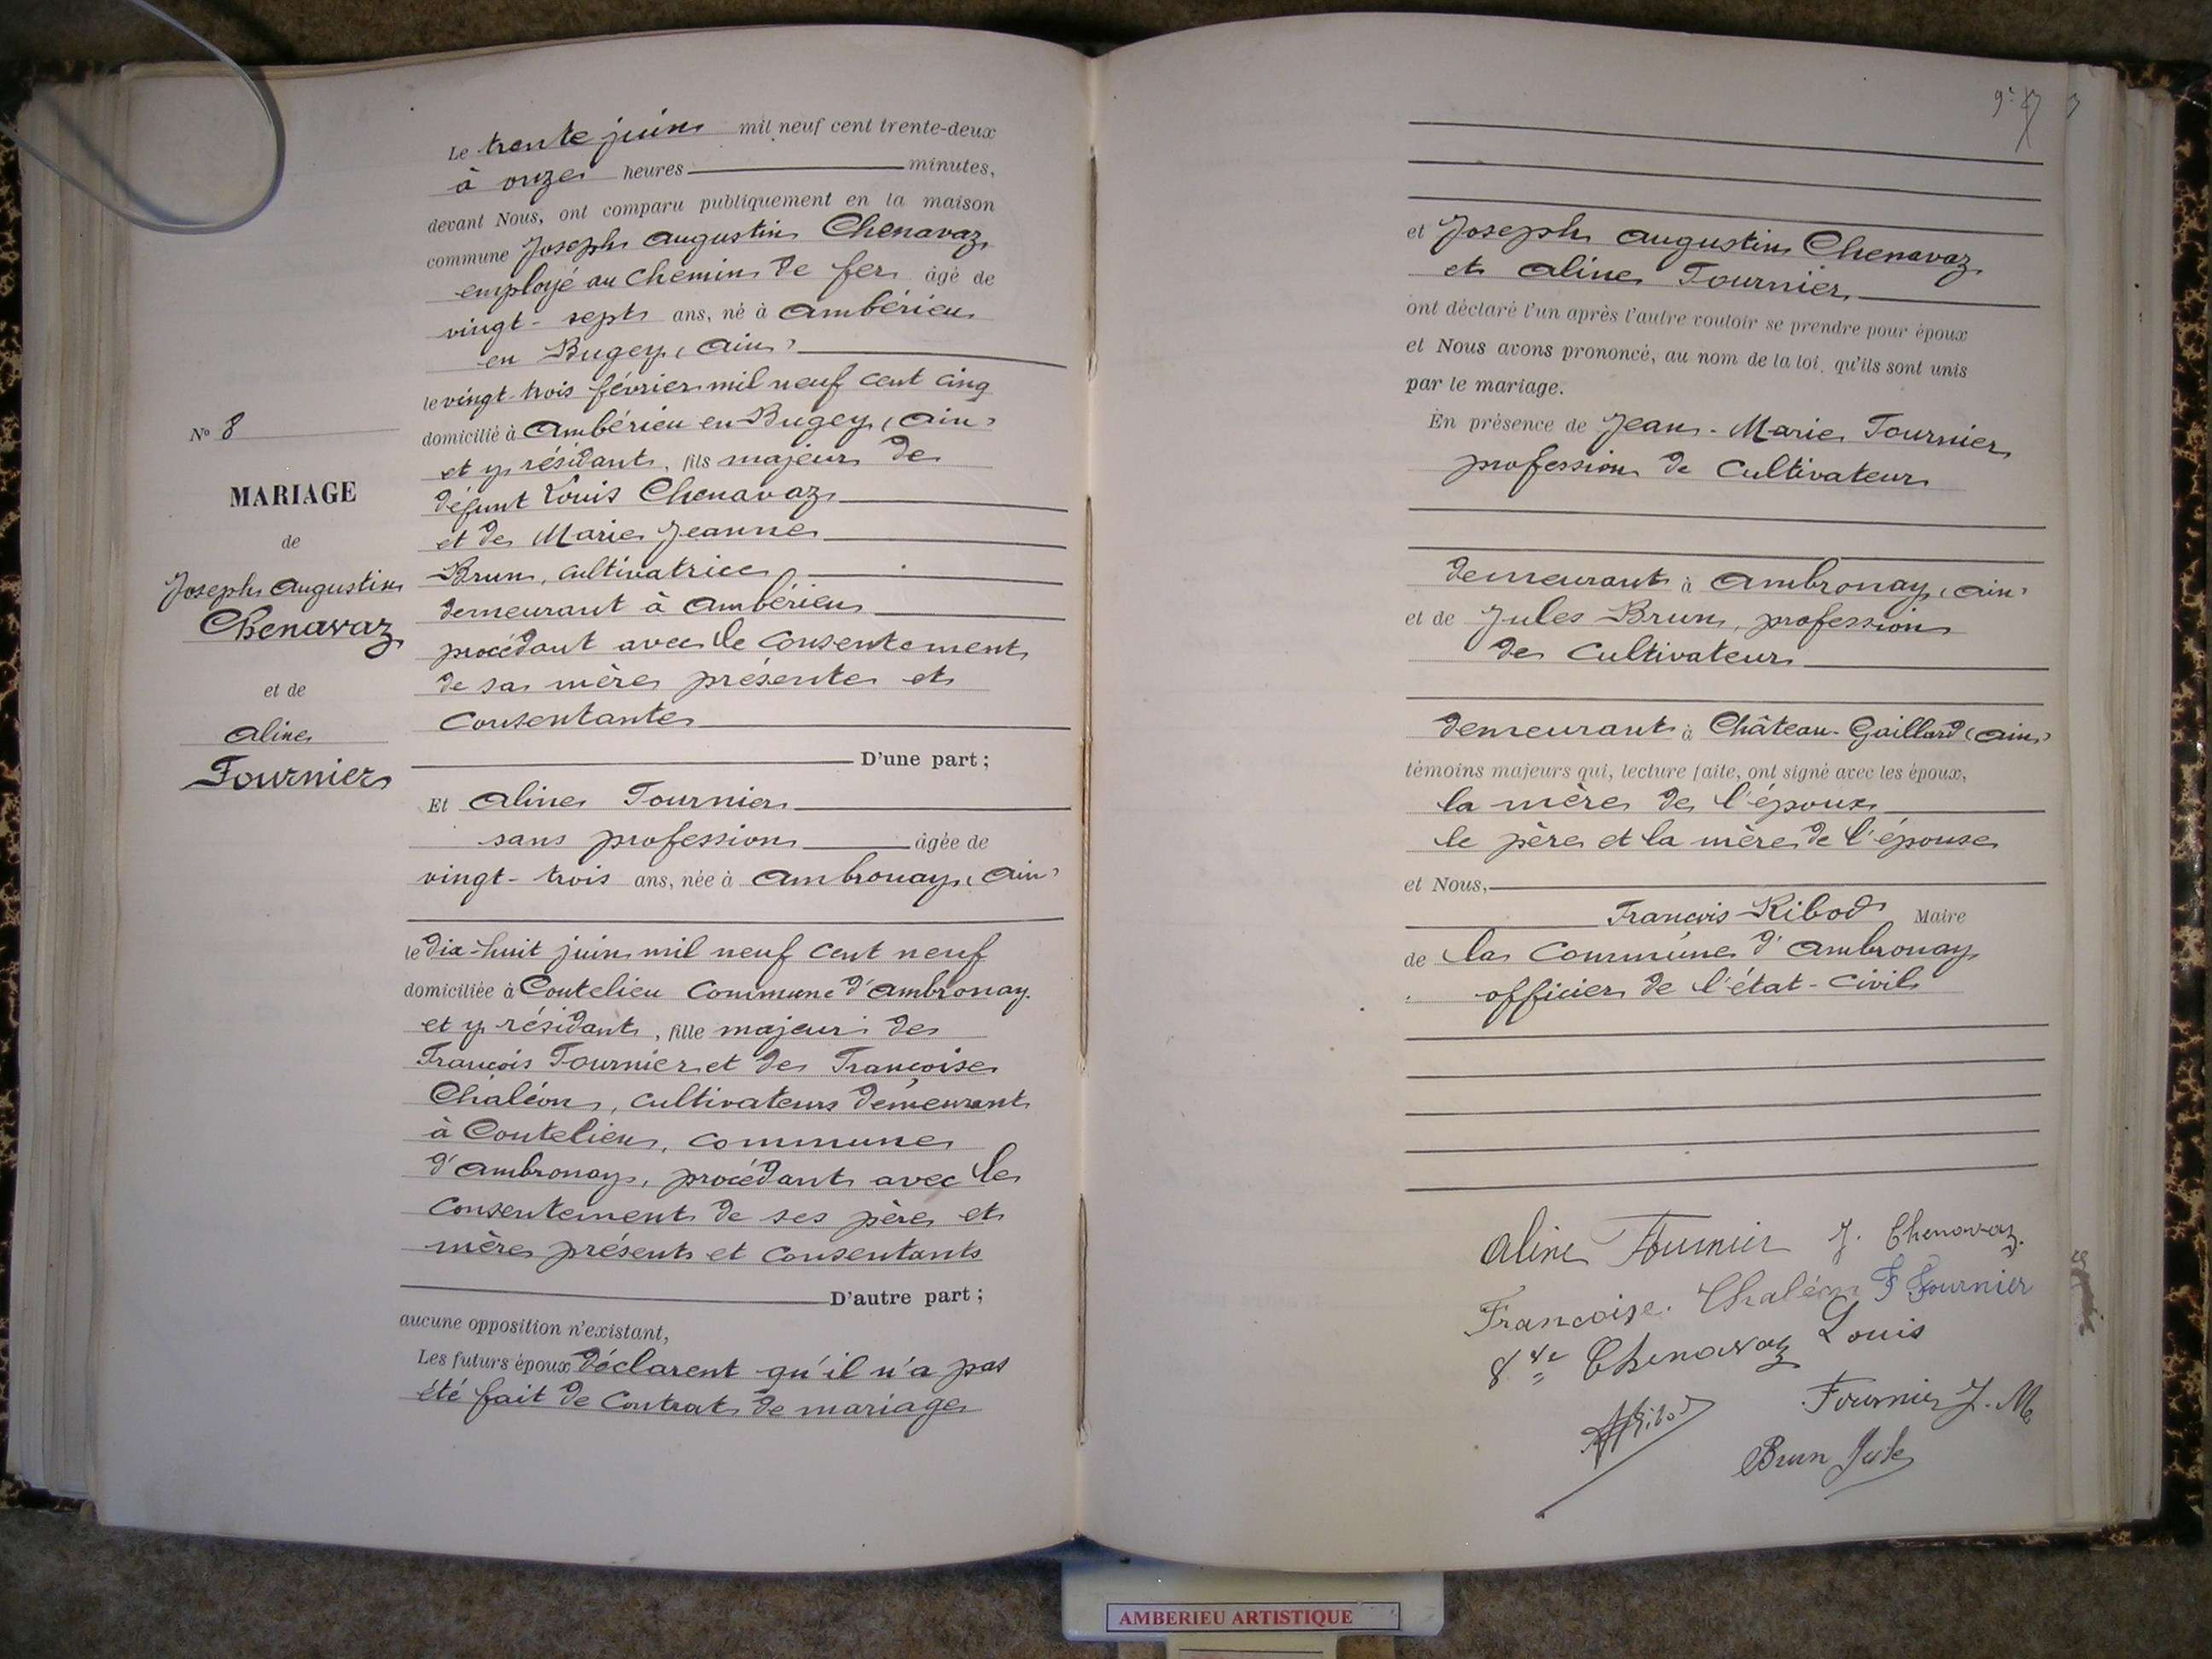 N° 8
MARIAGE
de
Joseph Augustin
Chenavaz
et de
Aline
Fournier
Le trente juin mil neuf cent trente-deux
à onze heures minutes,
devant Nous, ont comparu publiquement en la maison
commune Joseph Augustin Chenavaz
employé au Chemin de fer âgé de
vingt-sept ans, né à Ambérieu
en Bugey (Ain)
le vingt-trois février mil neuf cent cinq
domicilié à Ambérieu en Bugey (Ain)
et y résidant, fils majeur de
défunt Louis Chenavaz
et de Marie Jeanne
Brun, cultivatrice
demeurant à Ambérieu
procédant avec le consentement
de sa mère présente et
consentante
D'une part ;
Et Aline Fournier
sans profession âgée de
vingt-trois ans, née à Ambronay (Ain)
le dix-huit juin mil neuf cent neuf
domiciliée à Coutelieu Commune d'Ambronay
et y résidant, fille majeur de
François Fournier et de Françoise
Chaléon, cultivateurs demeurant
à Coutelieu, commune
d'Ambronay, procédant avec le
consentement de ses père et
mère présents et consentants
D'autre part ;
aucune opposition n'existant,
Les futurs époux déclarent qu'il n'a pas
été fait de Contrat de mariage
et Joseph Augustin Chenavaz
et Aline Fournier
ont déclaré l'un après l'autre vouloir se prendre pour époux
et Nous avons prononcé, au nom de la loi, qu'ils sont unis
par le mariage.
En présence de Jean-Marie Fournier
profession de Cultivateur
demeurant à Ambronay (Ain)
et de Jules Brun, profession
de Cultivateur
demeurant à Château-Gaillard (Ain)
témoins majeurs qui, lecture faite, ont signé avec les époux,
la mère de l'époux
le père et la mère de l'épouse
et Nous,
François Ribod Maire
de la Commune d'Ambronay
officier de l'état-civil
Aline Fournier J. Chenavaz
Francoise. Chaléon F Fournier
Chenavaz Louis
Ribod Fournier J. M
Brun Jules
AMBERIEU ARTISTIQUE